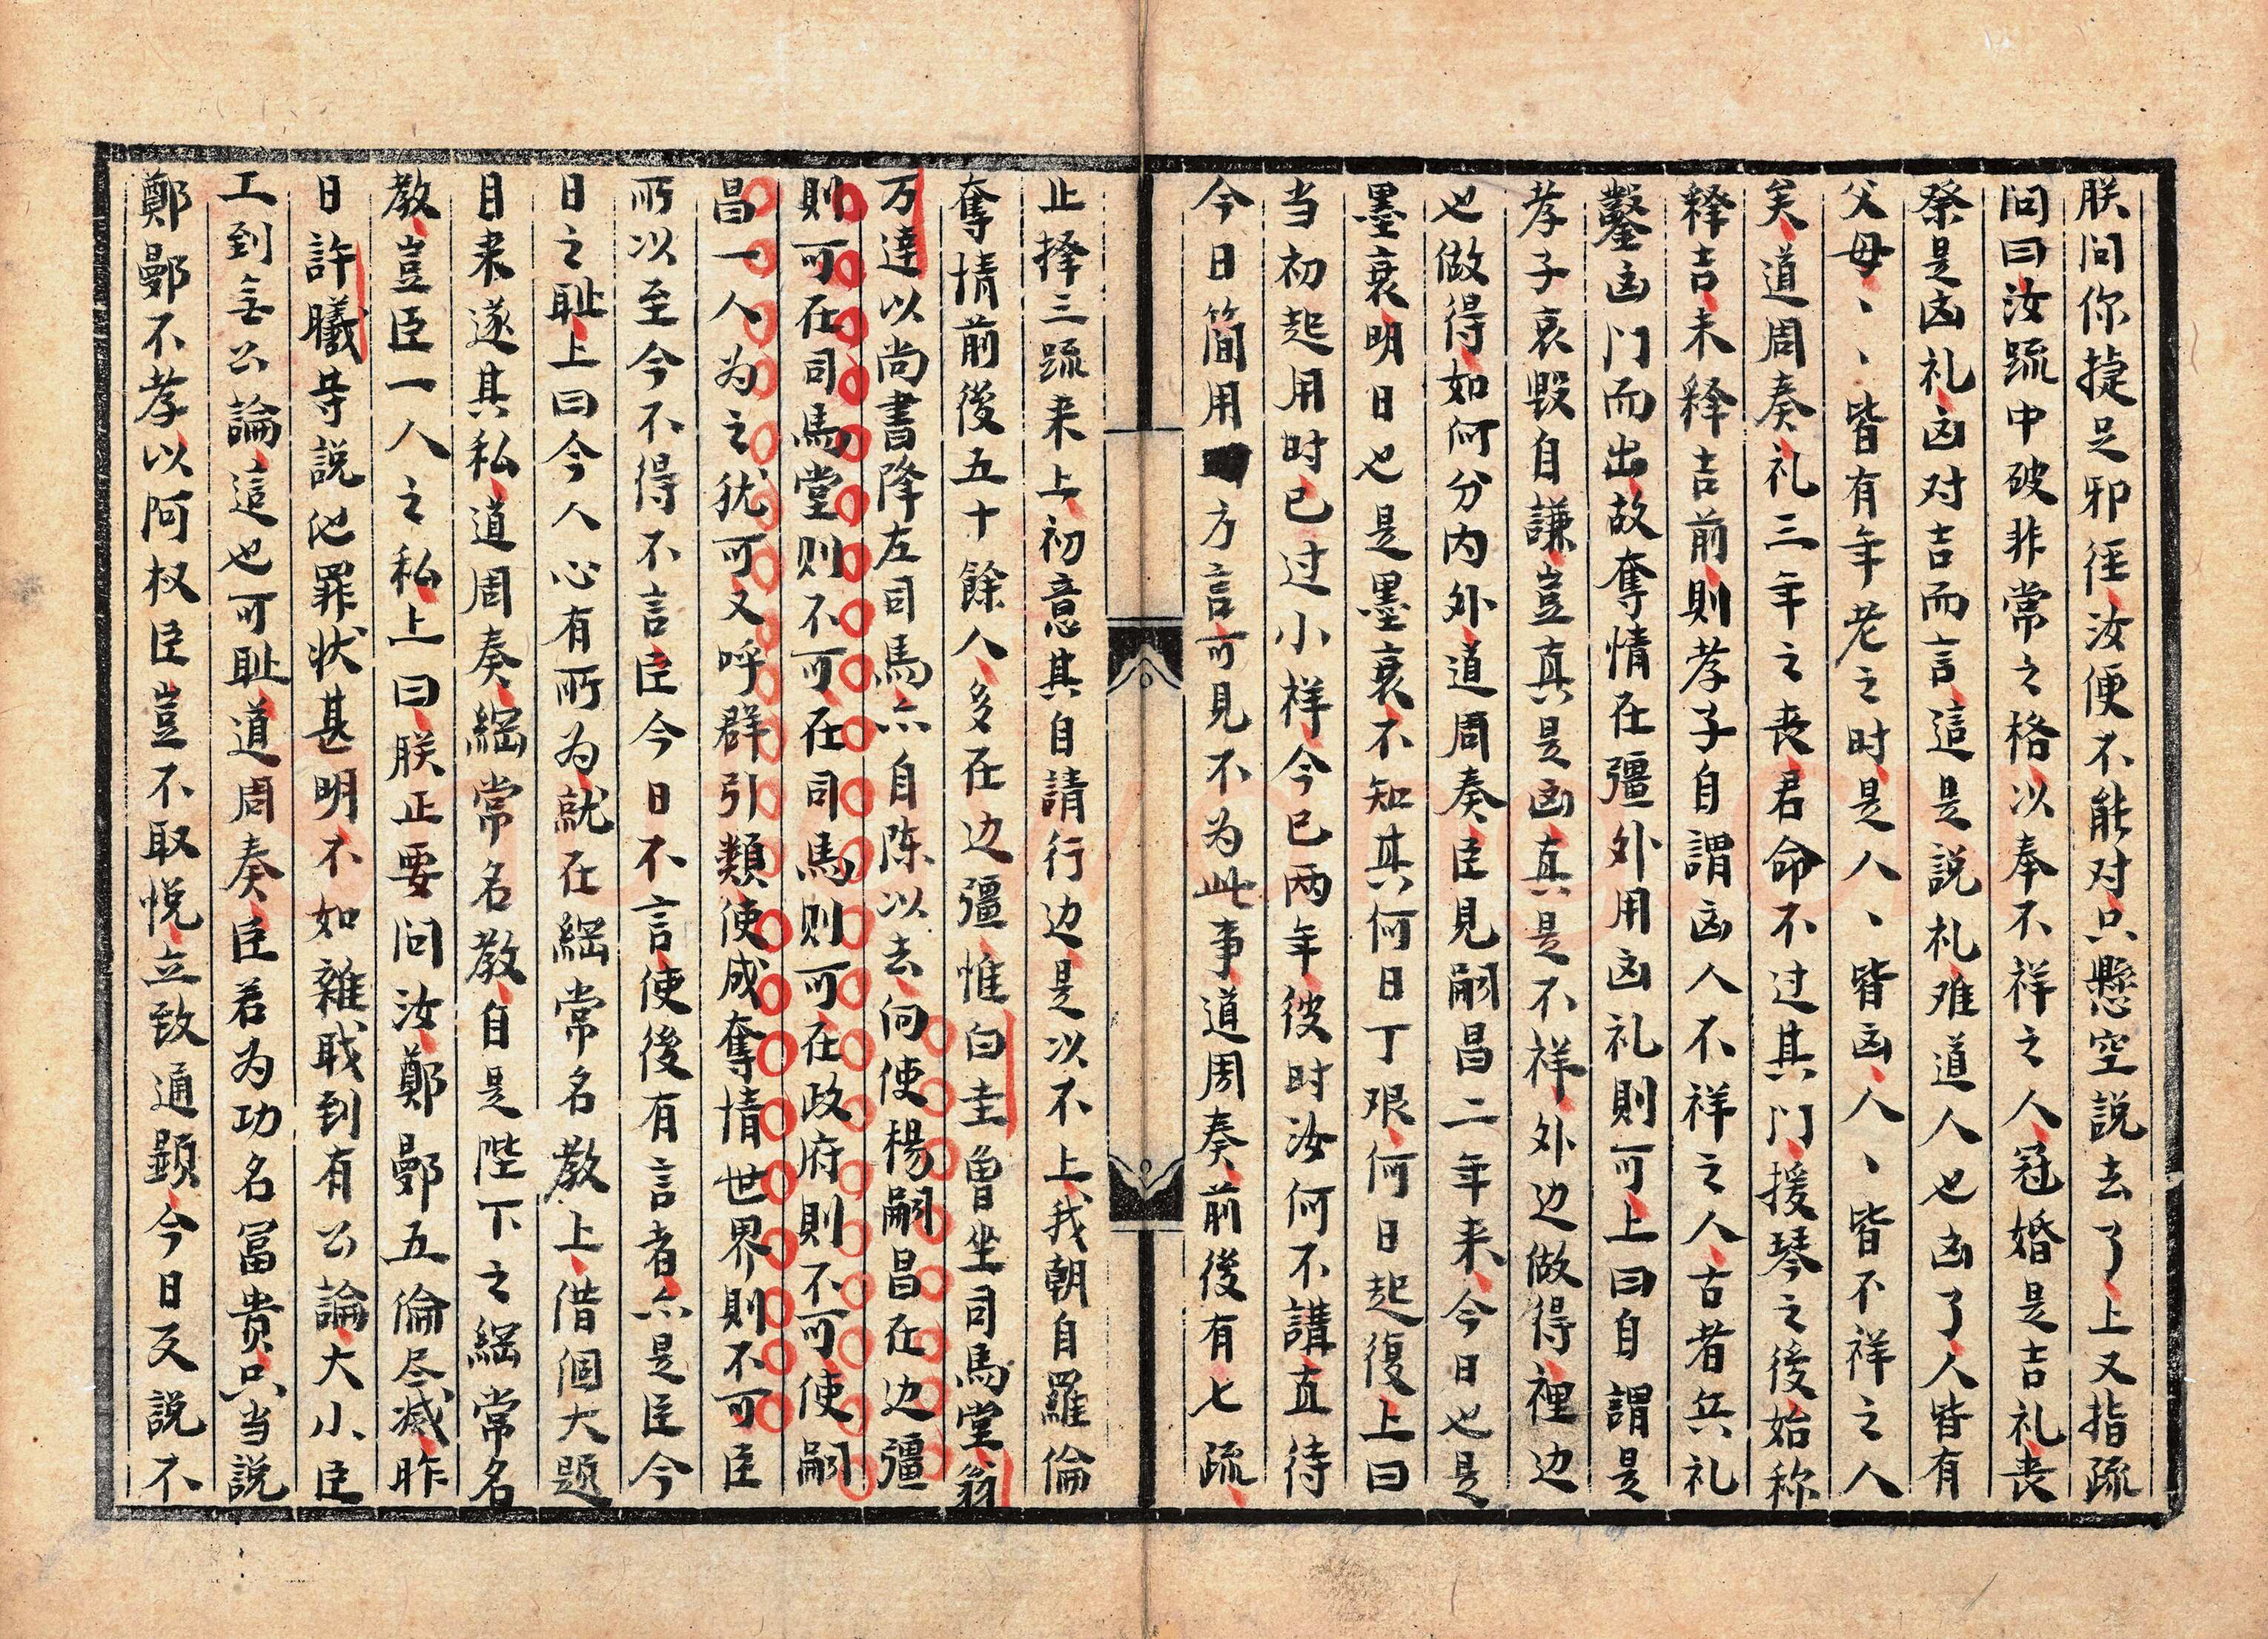 朕问你捷足邪径汝便不能对只懸空説去了上又指疏
问曰汝疏中破非常之格以奉不祥之人冠婚是吉礼丧
祭是凶礼凶对吉而言這是説礼难道人也凶了人皆有
父母丶丶皆有年老之时是人丶皆凶人丶皆不祥之人
矣道周奏礼三年之丧君命不过其门援琴之後始称
释吉未释吉前則孝子自謂凶人不祥之人古者兵礼
鑿凶门而出故奪情在彊外用凶礼則可上曰自謂是
孝子哀毀自謙豈真是凶真是不祥外边做得裡边
也做得如何分内外道周奏臣見嗣昌二年来今日也是
墨衰明日也是墨衰不知其何日丁艰何日起復上曰
当初起用时已过小祥今已两年彼时汝何不講直待
今日简用方言可見不为此事道周奏前後有七疏
止择三疏来上初意其自請行边是以不上我朝自羅倫
奪情前後五十餘人多在边彊惟白圭曽坐司馬堂翁
万達以尚書降左司馬亦自陈以去向使楊嗣昌在边彊
則可在司馬堂则不可在司馬则可在政府則不可使嗣
昌一人为之犹可又呼群引類使成奪情世界則不可臣
所以至今不得不言臣今日不言使後有言者亦是臣今
日之耻上曰今人心有所为就在綱常名教上借個大题
目来遂其私道周奏綱常名教自是陛下之綱常名
教豈臣一人之私上曰朕正要问汝鄭鄤五倫尽滅昨
日許曦等説他罪状甚明不如雜职到有公論大小臣
工到无公論這也可耻道周奏臣若为功名冨贵只当説
鄭鄤不孝以阿权臣豈不取悦立致通顕今日反説不